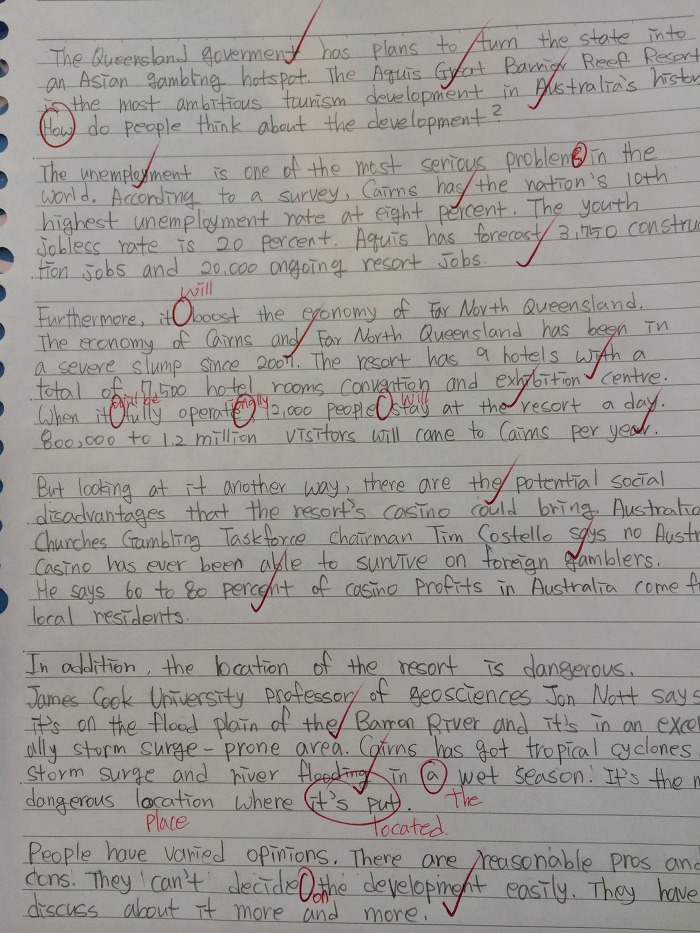 The Queensland goverment has plans to turn the state into
an Asian gambling hotspot. The Aquis Great Barrier Reef Resort
is the most ambitious tourism development in Australia's histor
How do people think about the development?
The unemployment is one of the most serious problems in the
world. According to a survey, Cairns has the nation's 10th
highest unemployment rate at eight percent. The youth
jobless rate is 20 percent. Aquis has forecast 3,750 constru
tion jobs and 20,000 ongoing resort jobs.
will
Furthermore, it boost the economy of Far North Queensland.
The economy of Cairns and Far North Queensland has been in
a severe slump since 2007. The resort has 9 hotels with a
total of 7,500 hotel rooms convention and exhibition centre.
When it fully operate, 12,000 people stay at the resort a day.
will
800,000 to 1.2 million visitors will come to Cairns per year.
But looking at it another way, there are the potential social
disadvantages that the resort's casino could bring. Australia
Churches Gambling Taskforce chairman Tim Costello says no Austr
casino has ever been able to survive on foreign gamblers.
He says 60 to 80 percent of casino profits in Australia come f
local residents.
In addition, the location of the resort is dangerous.
James Cook University professor of geosciences Jon Nott says
it's on the flood plain of the Barron River and it's in an exce
ally storm surge-prone area. Cairns has got tropical cyclones
storm surge and river flooding in a wet season! It's the m
dangerous location where it's put.
the
place located.
People have varied opinions. There are reasonable pros and
cons. They can't decide the development easily. They have
on
discuss about it more and more.